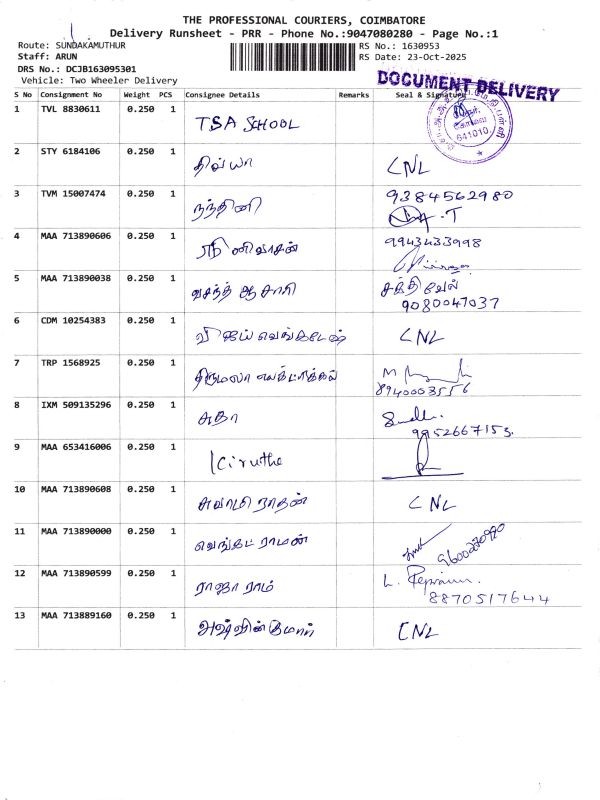 THE PROFESSIONAL COURIERS, COIMBATORE
Delivery Runsheet - PRR - Phone No.:9047080280 - Page No.:1
Route: SUNDAKAMUTHUR
RS No.: 1630953
Staff: ARUN
RS Date: 23-Oct-2025
DRS No.: DCJB163095301
Vehicle: Two Wheeler Delivery
DOCUMENT DELIVERY
S No Consignment No Weight PCS Consignee Details Remarks Seal & Signature
1 TVL 8830611 0.250 1 TSA SCHOOL
641010
2 STY 6184106 0.250 1 திவ்யா CNL
3 TVM 15007474 0.250 1 நந்தினி 9384562980
4 MAA 713890606 0.250 1 ஸ்ரீனிவாசன் 9943433998
5 MAA 713890038 0.250 1 வசந்த் ஆசாரி சக்திவேல்
9080047037
6 CDM 10254383 0.250 1 விஜய் வெங்கடேஷ் CNL
7 TRP 1568925 0.250 1 திருமலா எலக்ட்ரிக்கல்
8940003556
8 IXM 509135296 0.250 1 சுதா
9952667153.
9 MAA 653416006 0.250 1 Kiruthe
10 MAA 713890608 0.250 1 சுவாமி நாதன் CNL
11 MAA 713890000 0.250 1 வெங்கட் ராமன்
12 MAA 713890599 0.250 1 ராஜா ராம்
8870517644
13 MAA 713889160 0.250 1 அஷ்வின்குமார் CNL